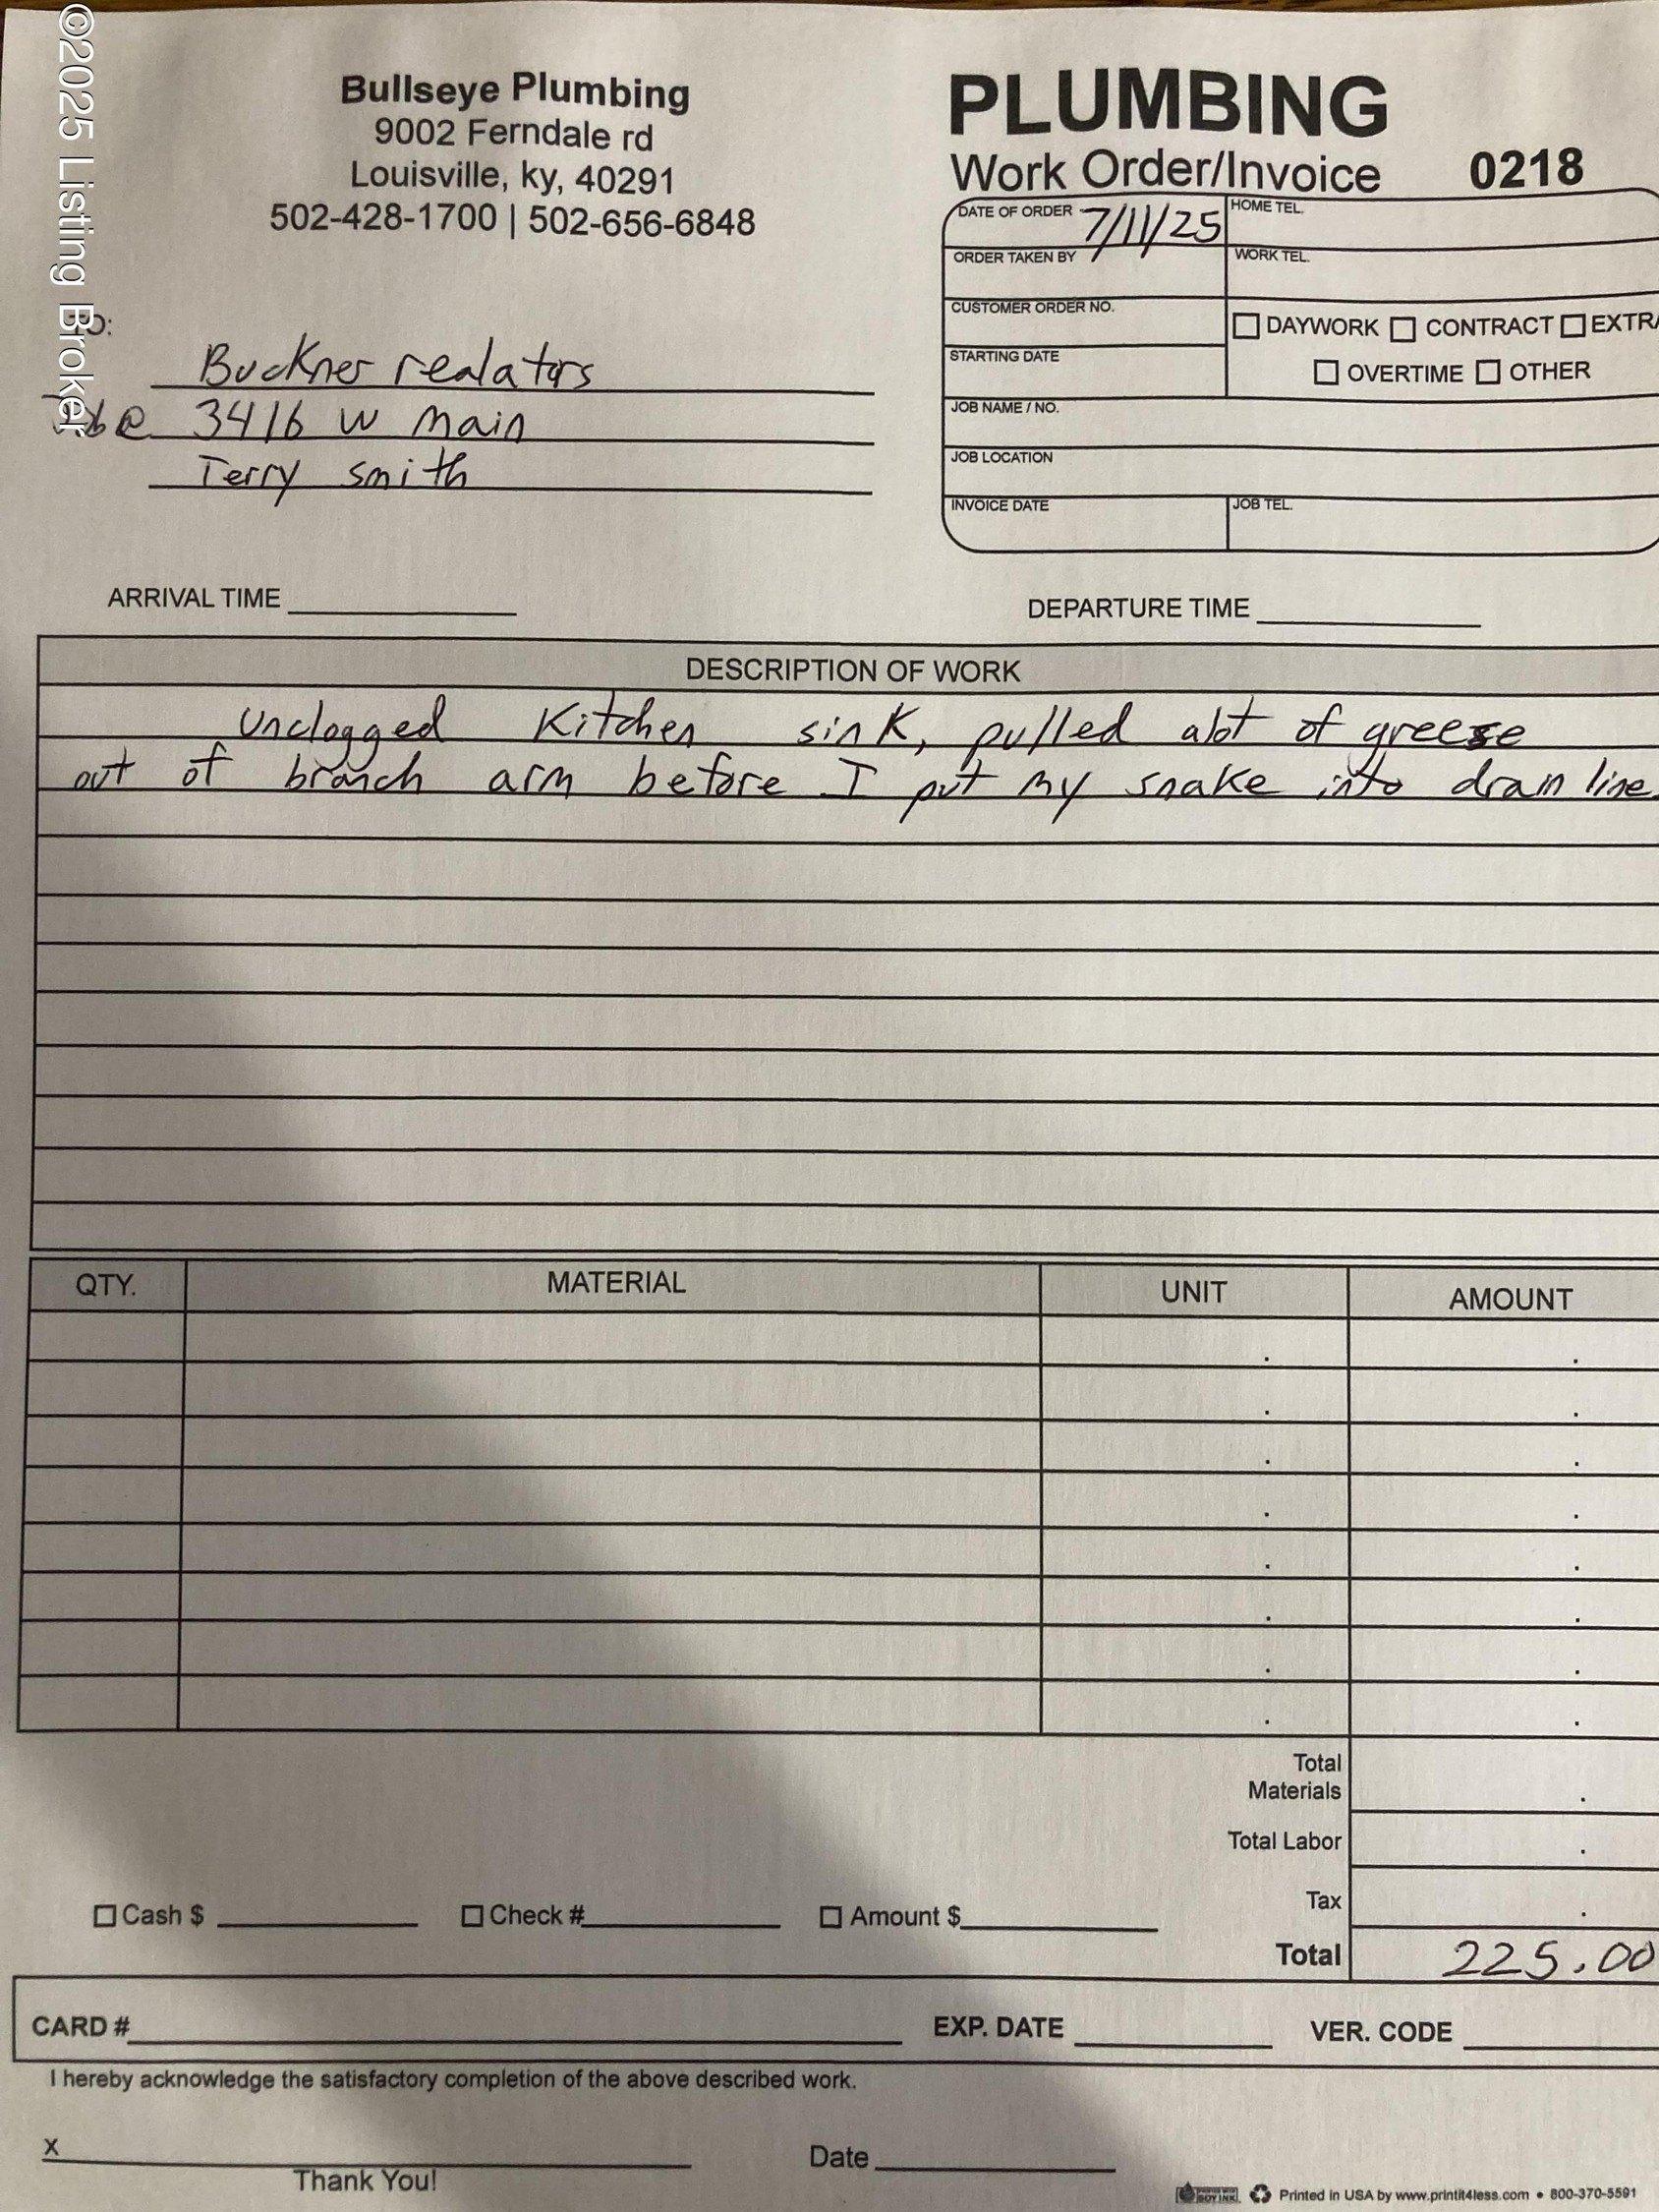 ©2025 Listing Broker
Bullseye Plumbing
9002 Ferndale rd
Louisville, ky, 40291
502-428-1700 | 502-656-6848
PLUMBING
Work Order/Invoice 0218
DATE OF ORDER 7/11/25 HOME TEL.
ORDER TAKEN BY WORK TEL.
CUSTOMER ORDER NO.
DAYWORK CONTRACT EXTRA
STARTING DATE
OVERTIME OTHER
JOB NAME / NO.
JOB LOCATION
INVOICE DATE JOB TEL.
TO:
Buckner realators
@ 3416 W Main
Terry smith
ARRIVAL TIME DEPARTURE TIME
DESCRIPTION OF WORK
Unclogged Kitchen sink, pulled alot of greese
out of branch arm before I put my snake into drain line
QTY. MATERIAL UNIT AMOUNT
Total
Materials
Total Labor
Tax
Cash $ Check # Amount $
Total 225.00
CARD # EXP. DATE VER. CODE
I hereby acknowledge the satisfactory completion of the above described work.
X Date
Thank You!
SOY INK Printed in USA by www.printit4less.com • 800-370-5591